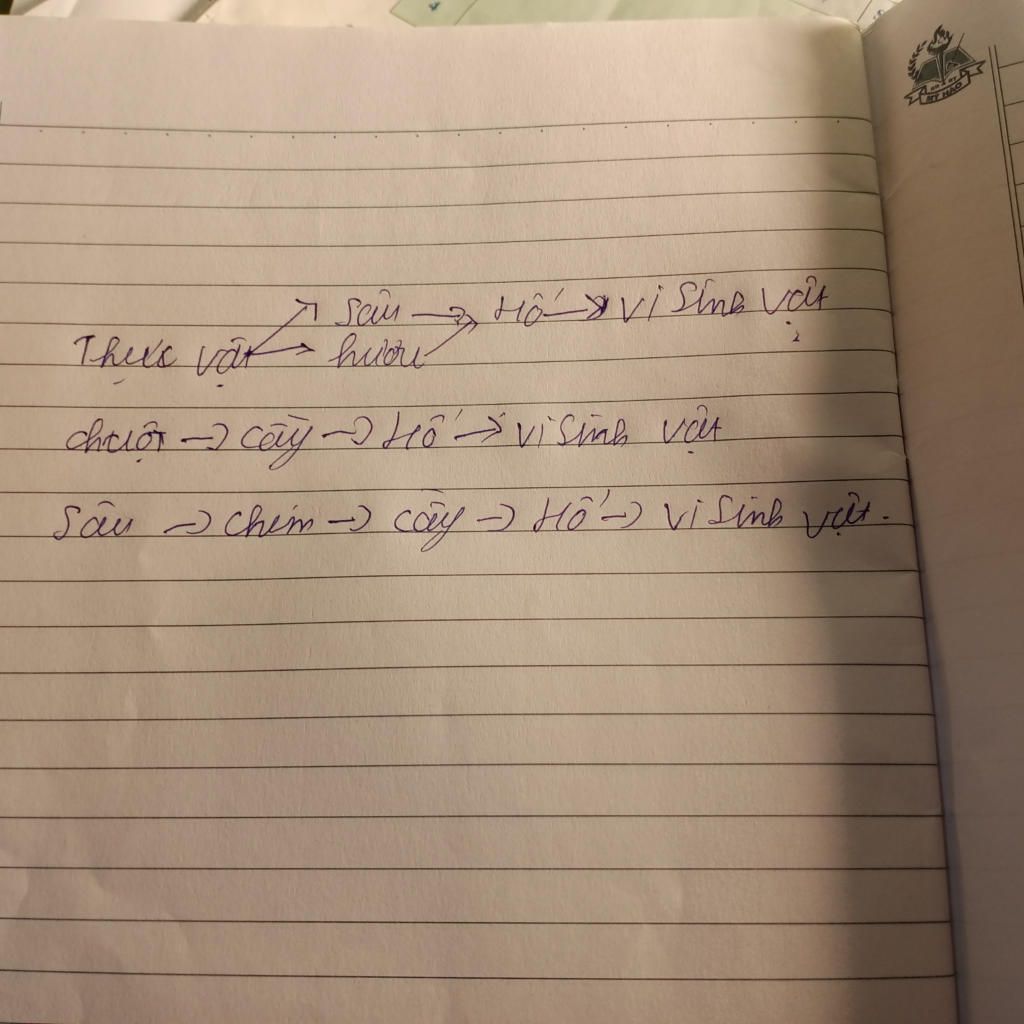 Sâu → Hổ → Vi Sinh Vật
Thực vật → hươu
chuột → cầy → Hổ → Vi Sinh vật
Sâu → Chim → cầy → Hổ → Vi Sinh vật.
MỸ HÀO